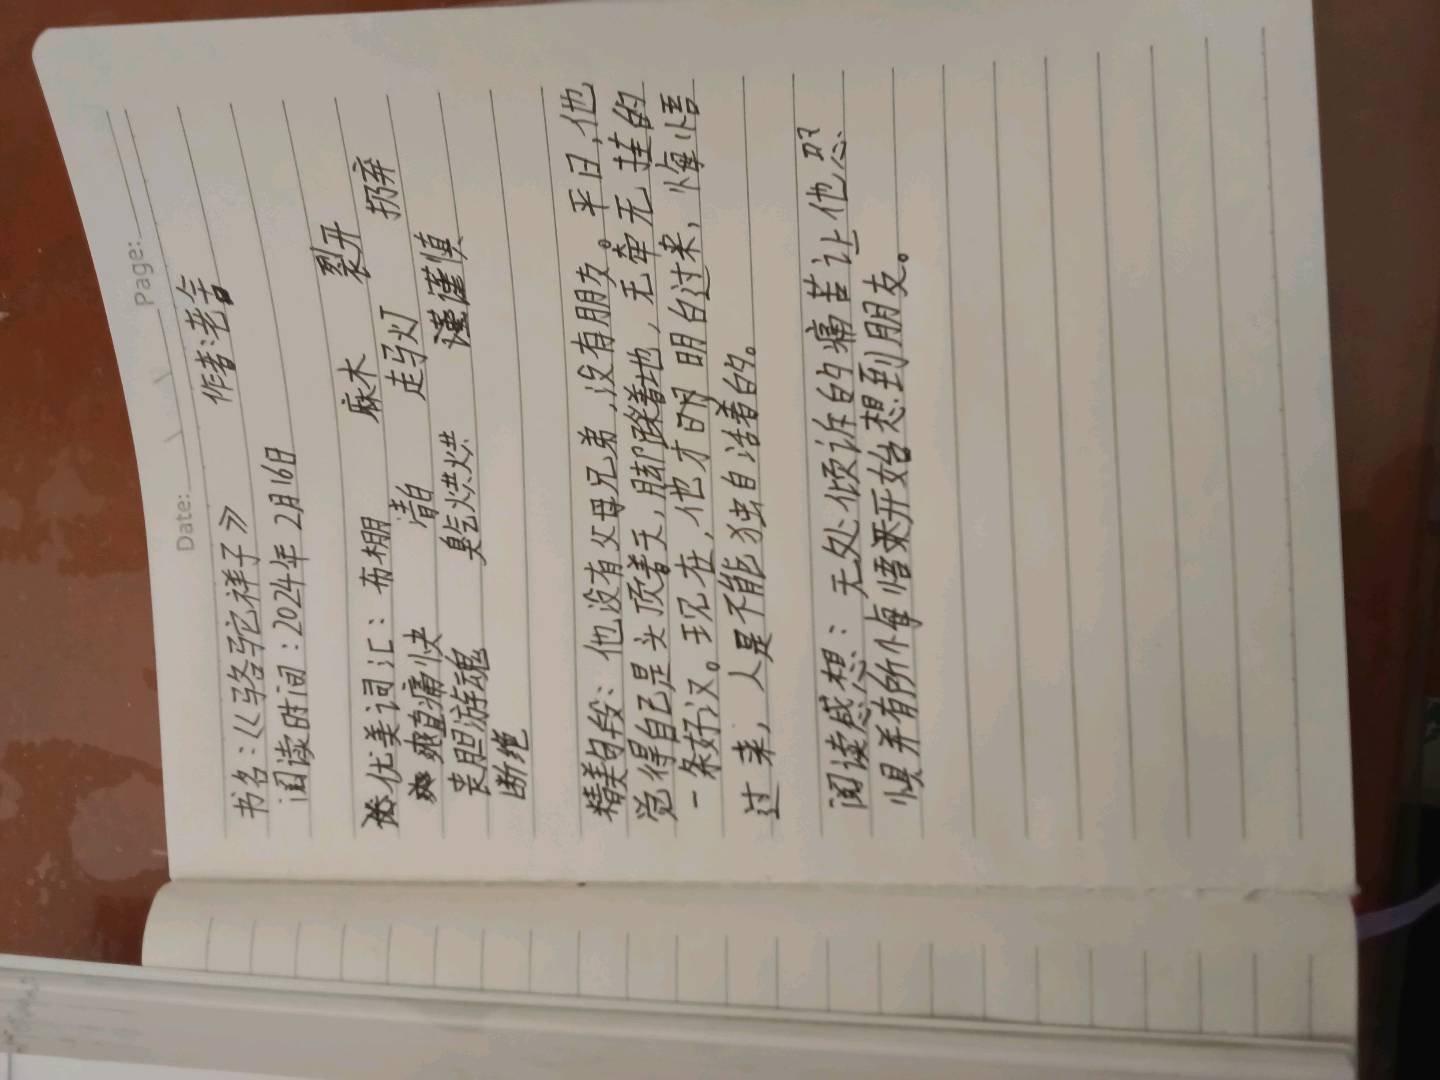 Date: Page:
书名:《骆驼祥子》 作者:老舍
阅读时间:2024年2月16日
优美词汇: 布棚 麻木 裂开
爽直痛快 清白 走马灯 扔弃
丧胆游魂 臭烘烘 谨慎
断绝
精美句段:他没有父母兄弟,没有朋友。平日,他
觉得自己是头顶着天,脚踩着地,无牵无挂的
一条好汉。现在,他才明白过来,悔悟
过来,人是不能独自活着的。
阅读感想:无处倾诉的痛苦让他忍
惧并有所悔悟来开始想到朋友。